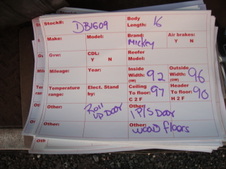 Stock#: DB1609 Body Length: 16
Make: Model: Brand: Mickey Air brakes: Y N
Gvw: CDL? Y N Reefer Model:
Mileage: Year: Inside Width: (W) 92 Outside Width: (W) 96
Temperature range: Elect. Stand by: Ceiling To floor: C 2 F 97 Header To floor: H 2 F 90
Other: Roll up Door Other: 1 P/S Door
Other: Wood Floors